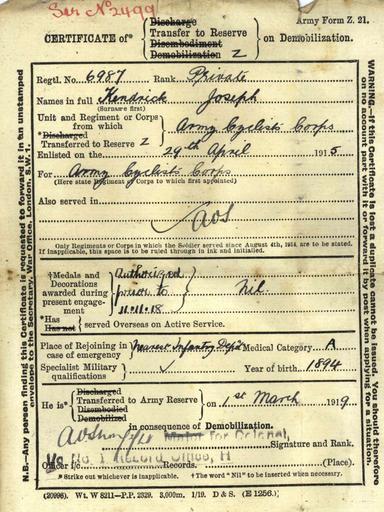 Ser No 2499
Army Form Z. 21.
CERTIFICATE of* { Discharge Transfer to Reserve Disembodiment Demobilization Z } on Demobilization.
Regtl. No. 6987 Rank Private
Names in full Kendrick Joseph
(Surname first)
Unit and Regiment or Corps from which } Army Cyclists Corps
*Discharged
Transferred to Reserve Z
Enlisted on the 29th April 1915
For Army Cyclists Corps
(Here state Regiment or Corps to which first appointed)
Also served in
AOS
Only Regiments or Corps in which the Soldier served since August 4th, 1914, are to be stated.
If inapplicable, this space is to be ruled through in ink and initialled.
†Medals and Decorations awarded during present engagement } Authorized prior to 11.11.18 } Nil.
*Has
Has not } served Overseas on Active Service.
Place of Rejoining in case of emergency } Nearest Infantry Depot Medical Category A
Specialist Military qualifications } Year of birth 1894
He is* { Discharged Transferred to Army Reserve Disembodied Demobilized } on 1st March 1919
in consequence of Demobilization.
for Colonel,
Signature and Rank.
No. 1 Record Office, H
Officer i/c Records. (Place).
*Strike out whichever is inapplicable. †The word "Nil" to be inserted when necessary.
(20996). Wt. W 8211—P.P. 2329. 3,000m. 1/19. D & S. (E 1256.)
N.B.—Any person finding this Certificate is requested to forward it in an unstamped envelope to the Secretary, War Office, London, S.W.1.
WARNING.—If this Certificate is lost a duplicate cannot be issued. You should therefore on no account part with it or forward it by post when applying for a situation.